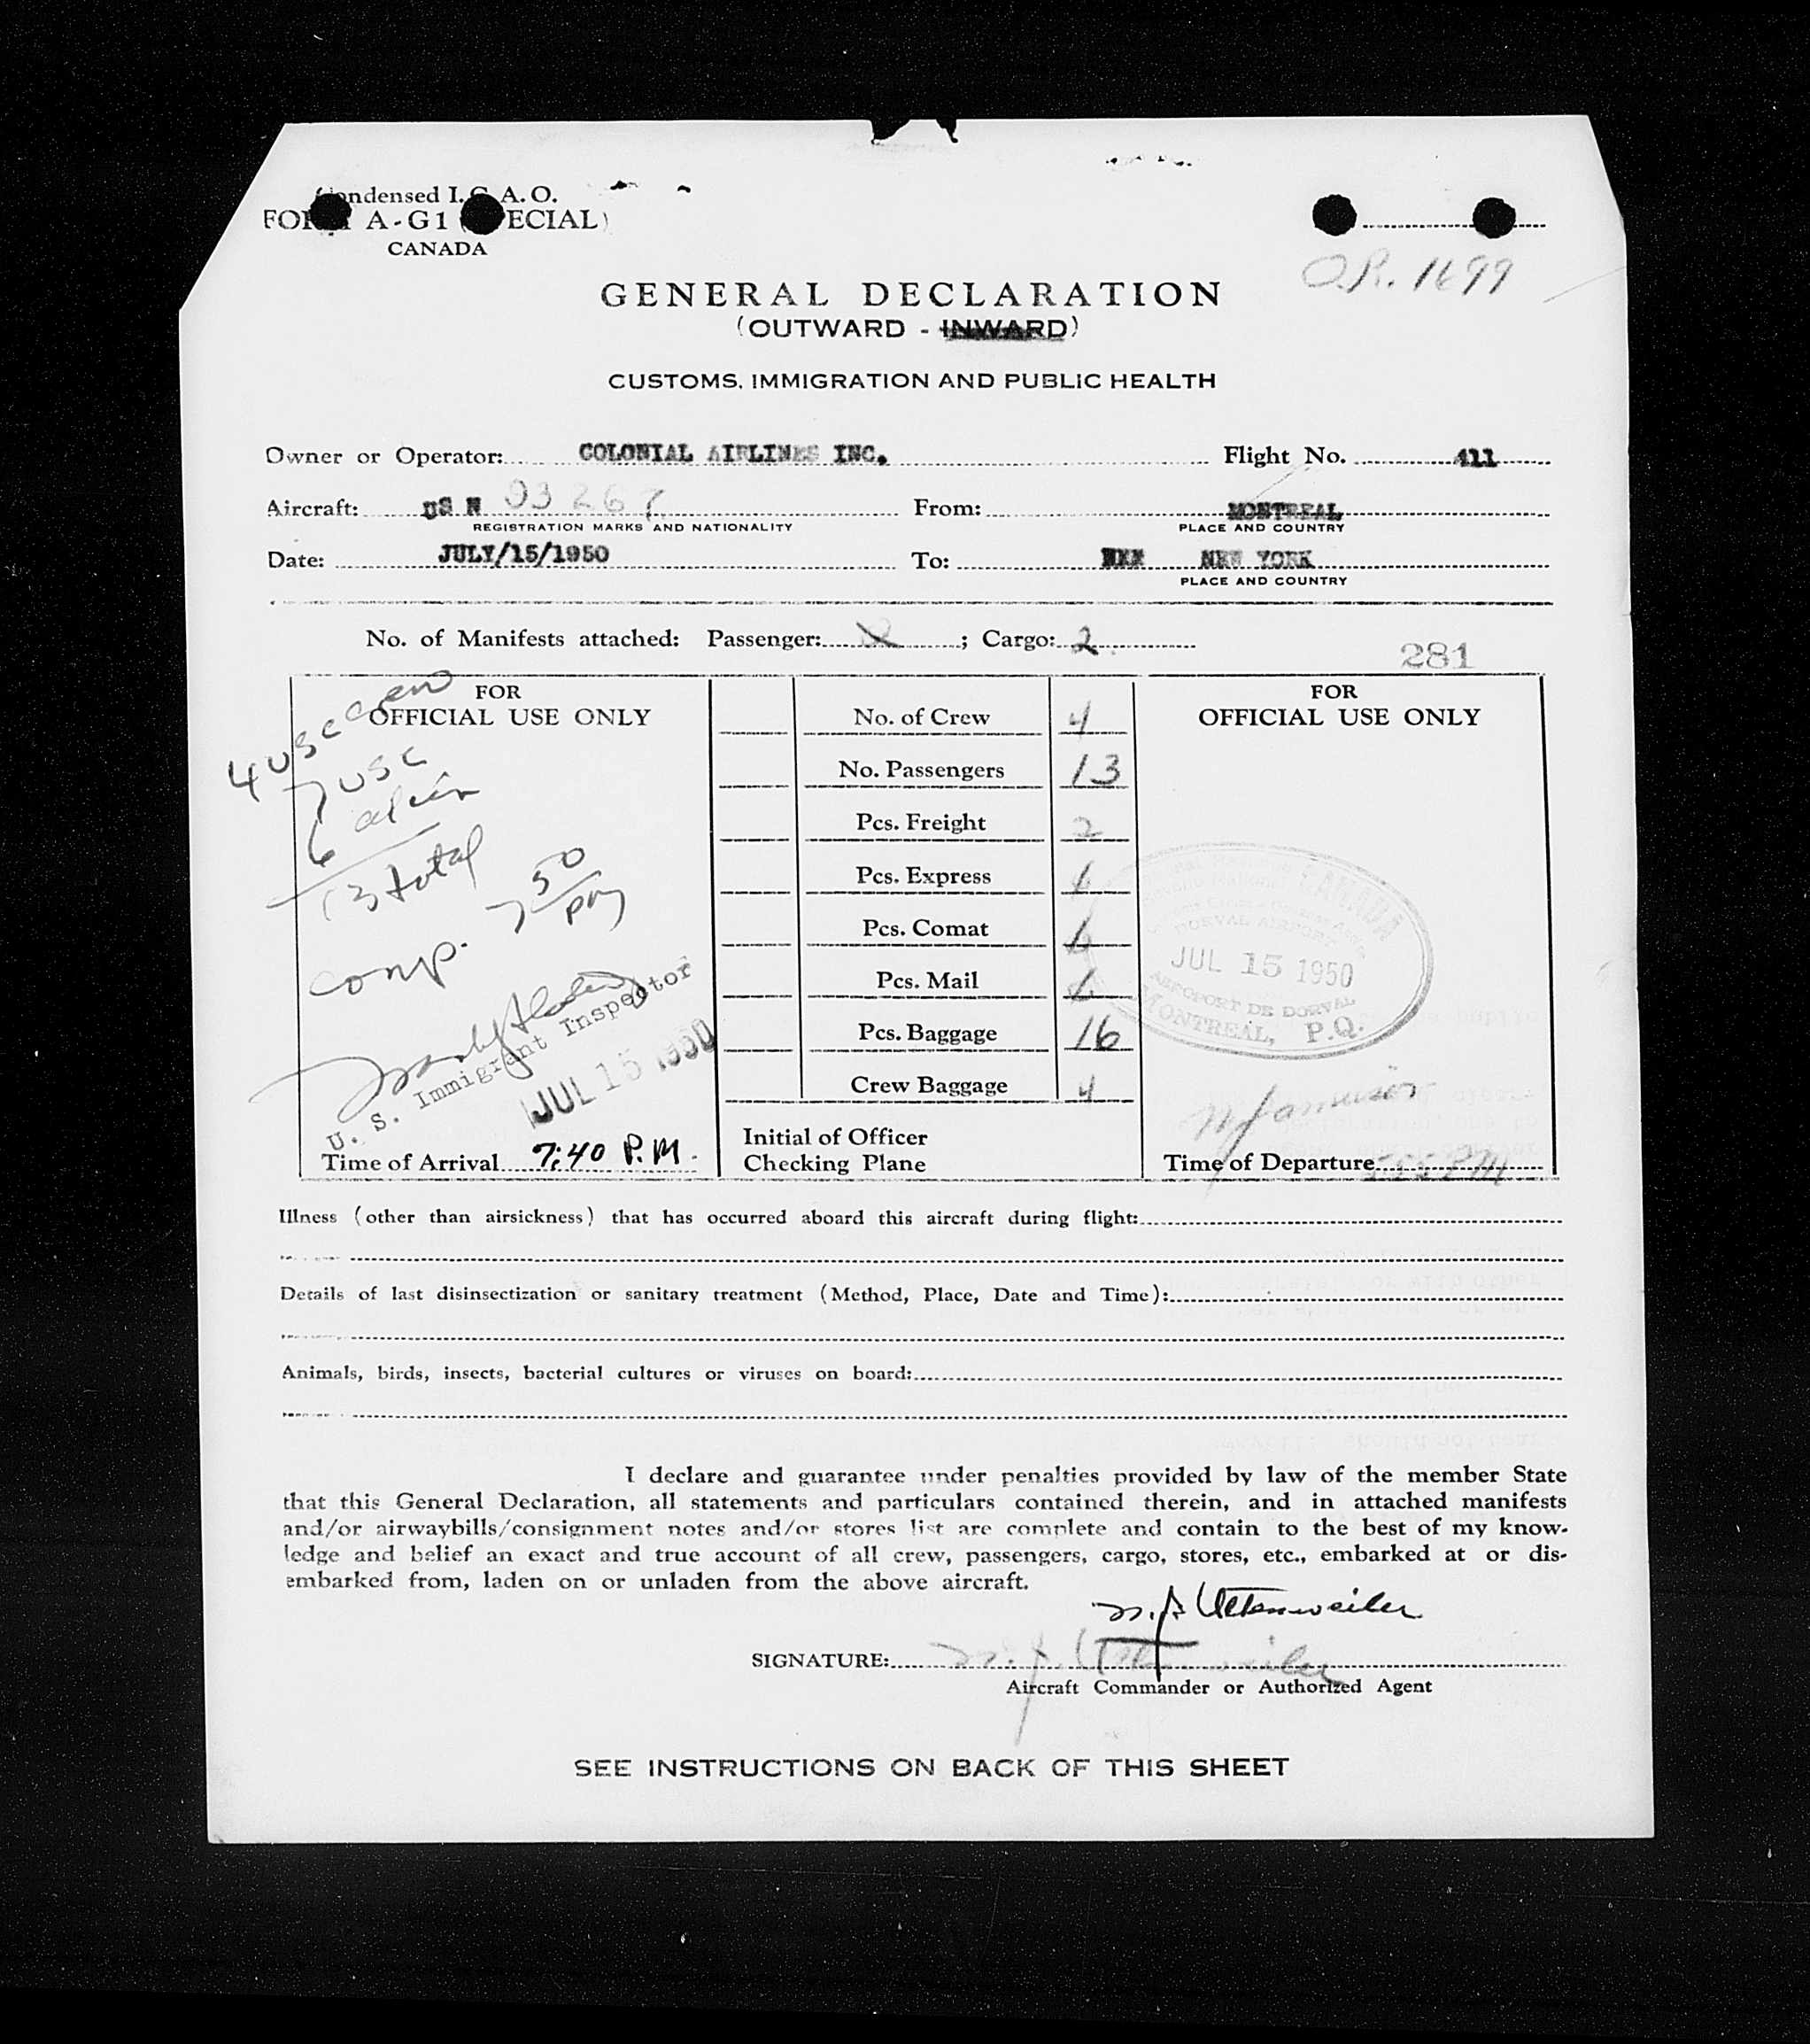 Condensed I.C.A.O.
FORM A-G1 (SPECIAL)
CANADA
O.R. 1699
GENERAL DECLARATION
(OUTWARD - INWARD)
CUSTOMS, IMMIGRATION AND PUBLIC HEALTH
Owner or Operator: COLONIAL AIRLINES INC. Flight No. 411
Aircraft: US N 93267 From: MONTREAL
REGISTRATION MARKS AND NATIONALITY PLACE AND COUNTRY
Date: JULY/15/1950 To: NEW YORK
PLACE AND COUNTRY
No. of Manifests attached: Passenger: ; Cargo: 2
281
FOR
OFFICIAL USE ONLY
4 USC crew
7 USC
6 alien
13 total
comp. 7 50
U. S. Immigrant Inspector
JUL 15 1950
Time of Arrival 7:40 P.M.
No. of Crew 4
No. Passengers 13
Pcs. Freight 2
Pcs. Express
Pcs. Comat
Pcs. Mail
Pcs. Baggage 16
Crew Baggage 4
Initial of Officer
Checking Plane
FOR
OFFICIAL USE ONLY
CANADA
DORVAL AIRPORT
JUL 15 1950
AEROPORT DE DORVAL
MONTREAL, P.Q.
Time of Departure PM
Illness (other than airsickness) that has occurred aboard this aircraft during flight:
Details of last disinsectization or sanitary treatment (Method, Place, Date and Time):
Animals, birds, insects, bacterial cultures or viruses on board:
I declare and guarantee under penalties provided by law of the member State
that this General Declaration, all statements and particulars contained therein, and in attached manifests
and/or airwaybills/consignment notes and/or stores list are complete and contain to the best of my know-
ledge and belief an exact and true account of all crew, passengers, cargo, stores, etc., embarked at or dis-
embarked from, laden on or unladen from the above aircraft.
N. J. Uttenweiler
SIGNATURE: N. J. Uttenweiler
Aircraft Commander or Authorized Agent
SEE INSTRUCTIONS ON BACK OF THIS SHEET